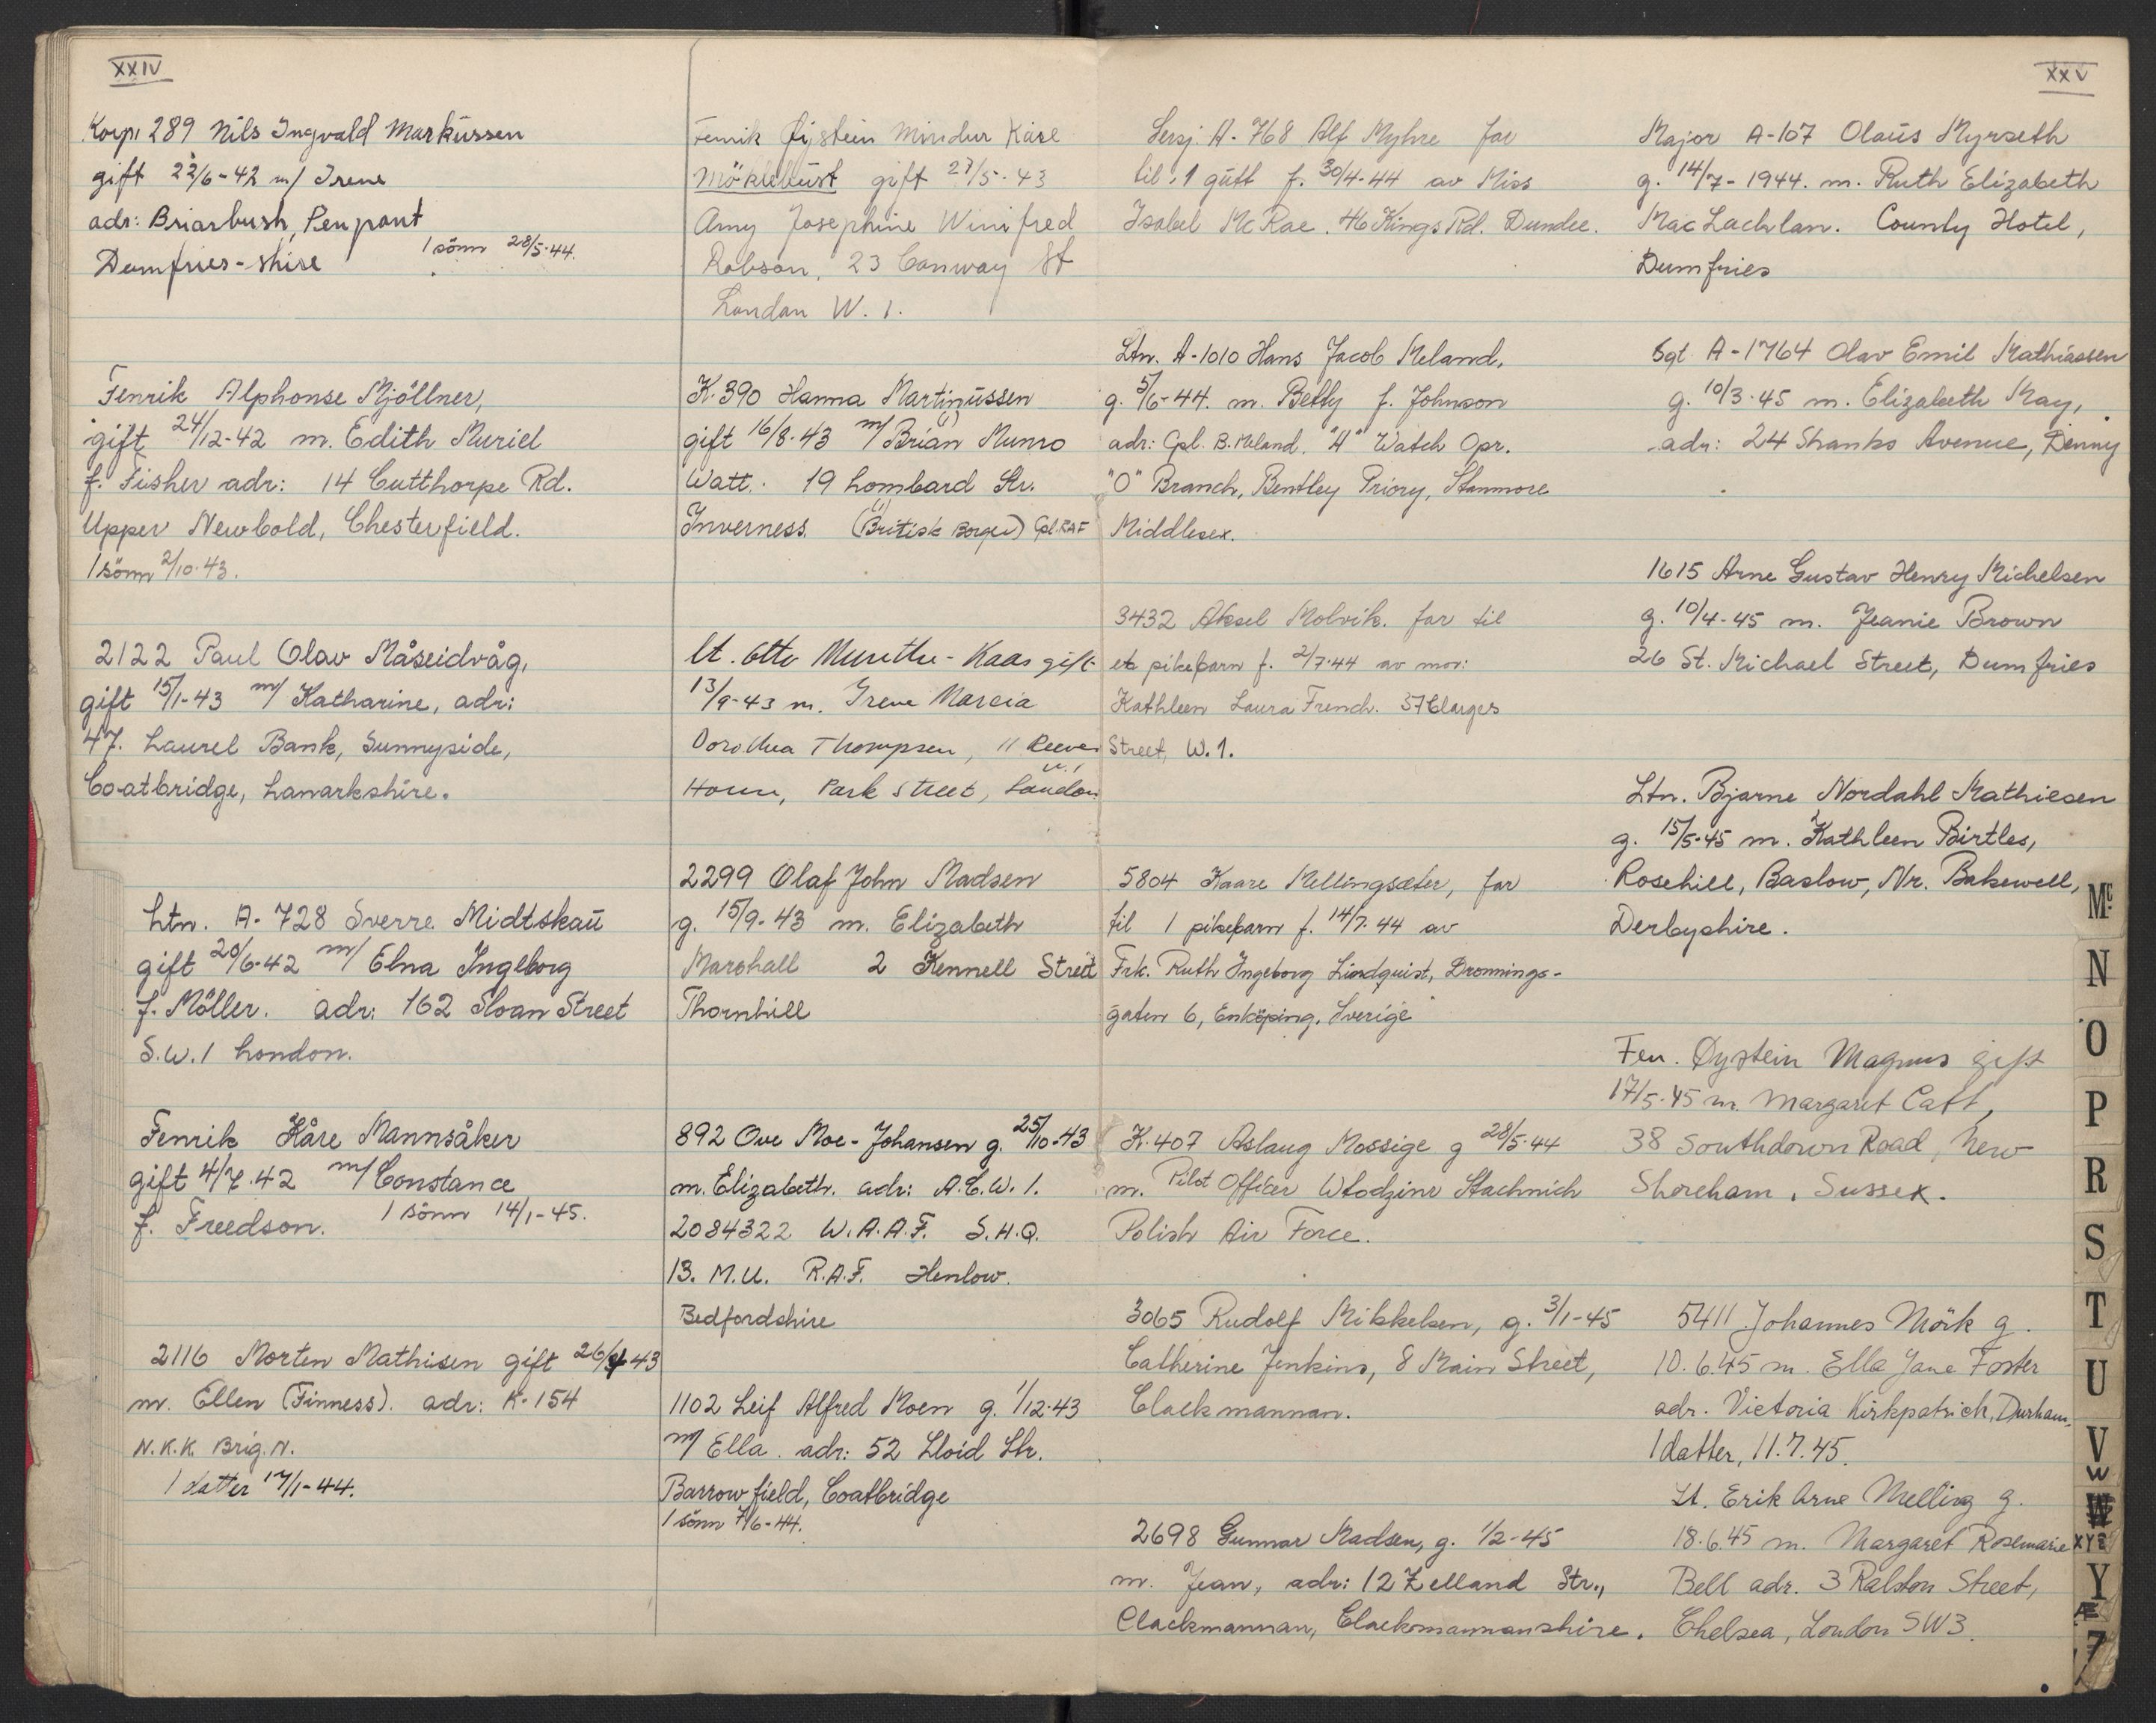 XXIV
Korp. 289 Nils Ingvald Markussen
gift 22/6-42 m/ Irene
adr: Briarbush, Penpont
Dumfries-shire 1 sönn 28/5-44.
Fenrik Alphonse Mjöllner,
gift 24/12-42 m. Edith Muriel
f. Fisher adr: 14 Cutthorpe Rd.
Upper Newbold, Chesterfield.
1 sönn 2/10-43.
2122 Paul Olav Måseidvåg,
gift 15/1-43 m/ Katharine, adr:
47. Laurel Bank, Sunnyside,
Coatbridge, Lanarkshire.
Ltn. A-728 Sverre Midtskau
gift 20/6-42 m/ Elna Ingeborg
f. Möller. adr: 162 Sloan Street
S.W.1 London.
Fenrik Kåre Mannsåker
gift 4/7.42 m/ Constance
f. Freedson. 1 sönn 14/1-45.
2116 Morten Mathisen gift 26/4-43
m. Ellen (Finness). adr: K-154
N.K.K. Brig. N.
1 datter 17/1-44.
Fenrik Øjstein Mindur Kåre
Möklebust gift 27/5-43
Amy Josephine Winifred
Robson, 23 Conway St
London W.1.
K.390 Hanna Martinussen
gift 16/8-43 m/ Brian (1) Munro
Watt. 19 Lombard Str.
Inverness. (1) (Britisk Borger) Cpl. RAF
lt. Otto Munthe-Kaas gift
13/9-43 m. Irene Marcia
Dorothea Thompsen, 11 Reeves
House, Park Street, London W.1
2299 Olaf John Madsen
g. 15/9-43 m. Elizabeth
Marshall 2 Kennell Street
Thornhill
892 Ove Moe-Johansen g. 25/10-43
m. Elizabeth. adr: A.C.W.1.
2084322 W.A.A.F. S.H.Q.
13. M.U. R.A.F. Henlow.
Bedfordshire
1102 Leif Alfred Moen g. 1/12-43
m/ Ella. adr: 52 Lloid Str.
Barrowfield, Coatbridge
1 sönn 7/6-44.
XXV
Sersj. A-768 Alf Myhre far
til 1 gutt f. 30/4-44 av Miss
Isabel McRae. 46 Kings Rd. Dundee.
Ltn. A-1010 Hans Jacob Meland.
g. 5/6-44. m. Betty f. Johnson
adr: Cpl. B. Meland. "A" Watch Opr.
"O" Branch, Bentley Priory, Stanmore
Middlesex.
3432 Aksel Molvik. far til
et pikebarn f. 2/7-44 av mor:
Kathleen Laura French. 57 Clarges
Street, W.1.
5804 Kaare Mellingsæter, far
til 1 pikebarn f. 14/7-44 av
Frk. Ruth Ingeborg Lindquist, Dronnings-
gaten 6, Enköping. Sverige
K.407 Aslaug Mossige g 28/5-44
m. Pilot Officer Wlodzinr Stachnich
Polish Air Force.
3065 Rudolf Mikkelsen, g. 3/1-45
Catherine Jenkins, 8 Main Street,
Clackmannan.
2698 Gunnar Madsen, g. 1/2-45
m. Jean, adr: 12 Zelland Str.,
Clackmannan, Clackmannanshire.
Major A-107 Olaus Myrseth
g. 14/7-1944. m. Ruth Elizabeth
MacLachlan. County Hotel,
Dumfries
Sgt. A-1764 Olav Emil Mathiassen
g. 10/3-45 m. Elizabeth May,
adr: 24 Shanks Avenue, Denny
1615 Arne Gustav Henry Michelsen
g. 10/4-45 m. Jeanie Brown
26 St. Michael Street, Dumfries
Ltn. Bjarne Nordahl Mathiesen
g. 15/5-45 m. Kathleen Birtles,
Rosehill, Baslow, Nr. Bakewell,
Derbyshire.
Fen. Øystein Magnus gift
17/5-45 m. Margaret Catt,
38 Southdown Road, New
Shoreham, Sussex.
5411 Johannes Mörk g.
10.6.45 m. Ella Jane Foster
adr. Victoria Kirkpatrick, Durham.
1 datter, 11.7.45.
Lt. Erik Arne Melling g.
18.6.45 m. Margaret Rosemarie
Bell adr. 3 Ralston Street,
Chelsea, London SW3.
Mc
N
O
P
R
S
T
U
V
W
W
XYZ
Y
Æ
Z